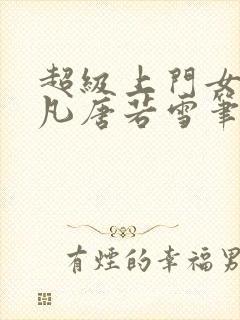 超級上門女
凡唐若雪筆
有煙的幸福男